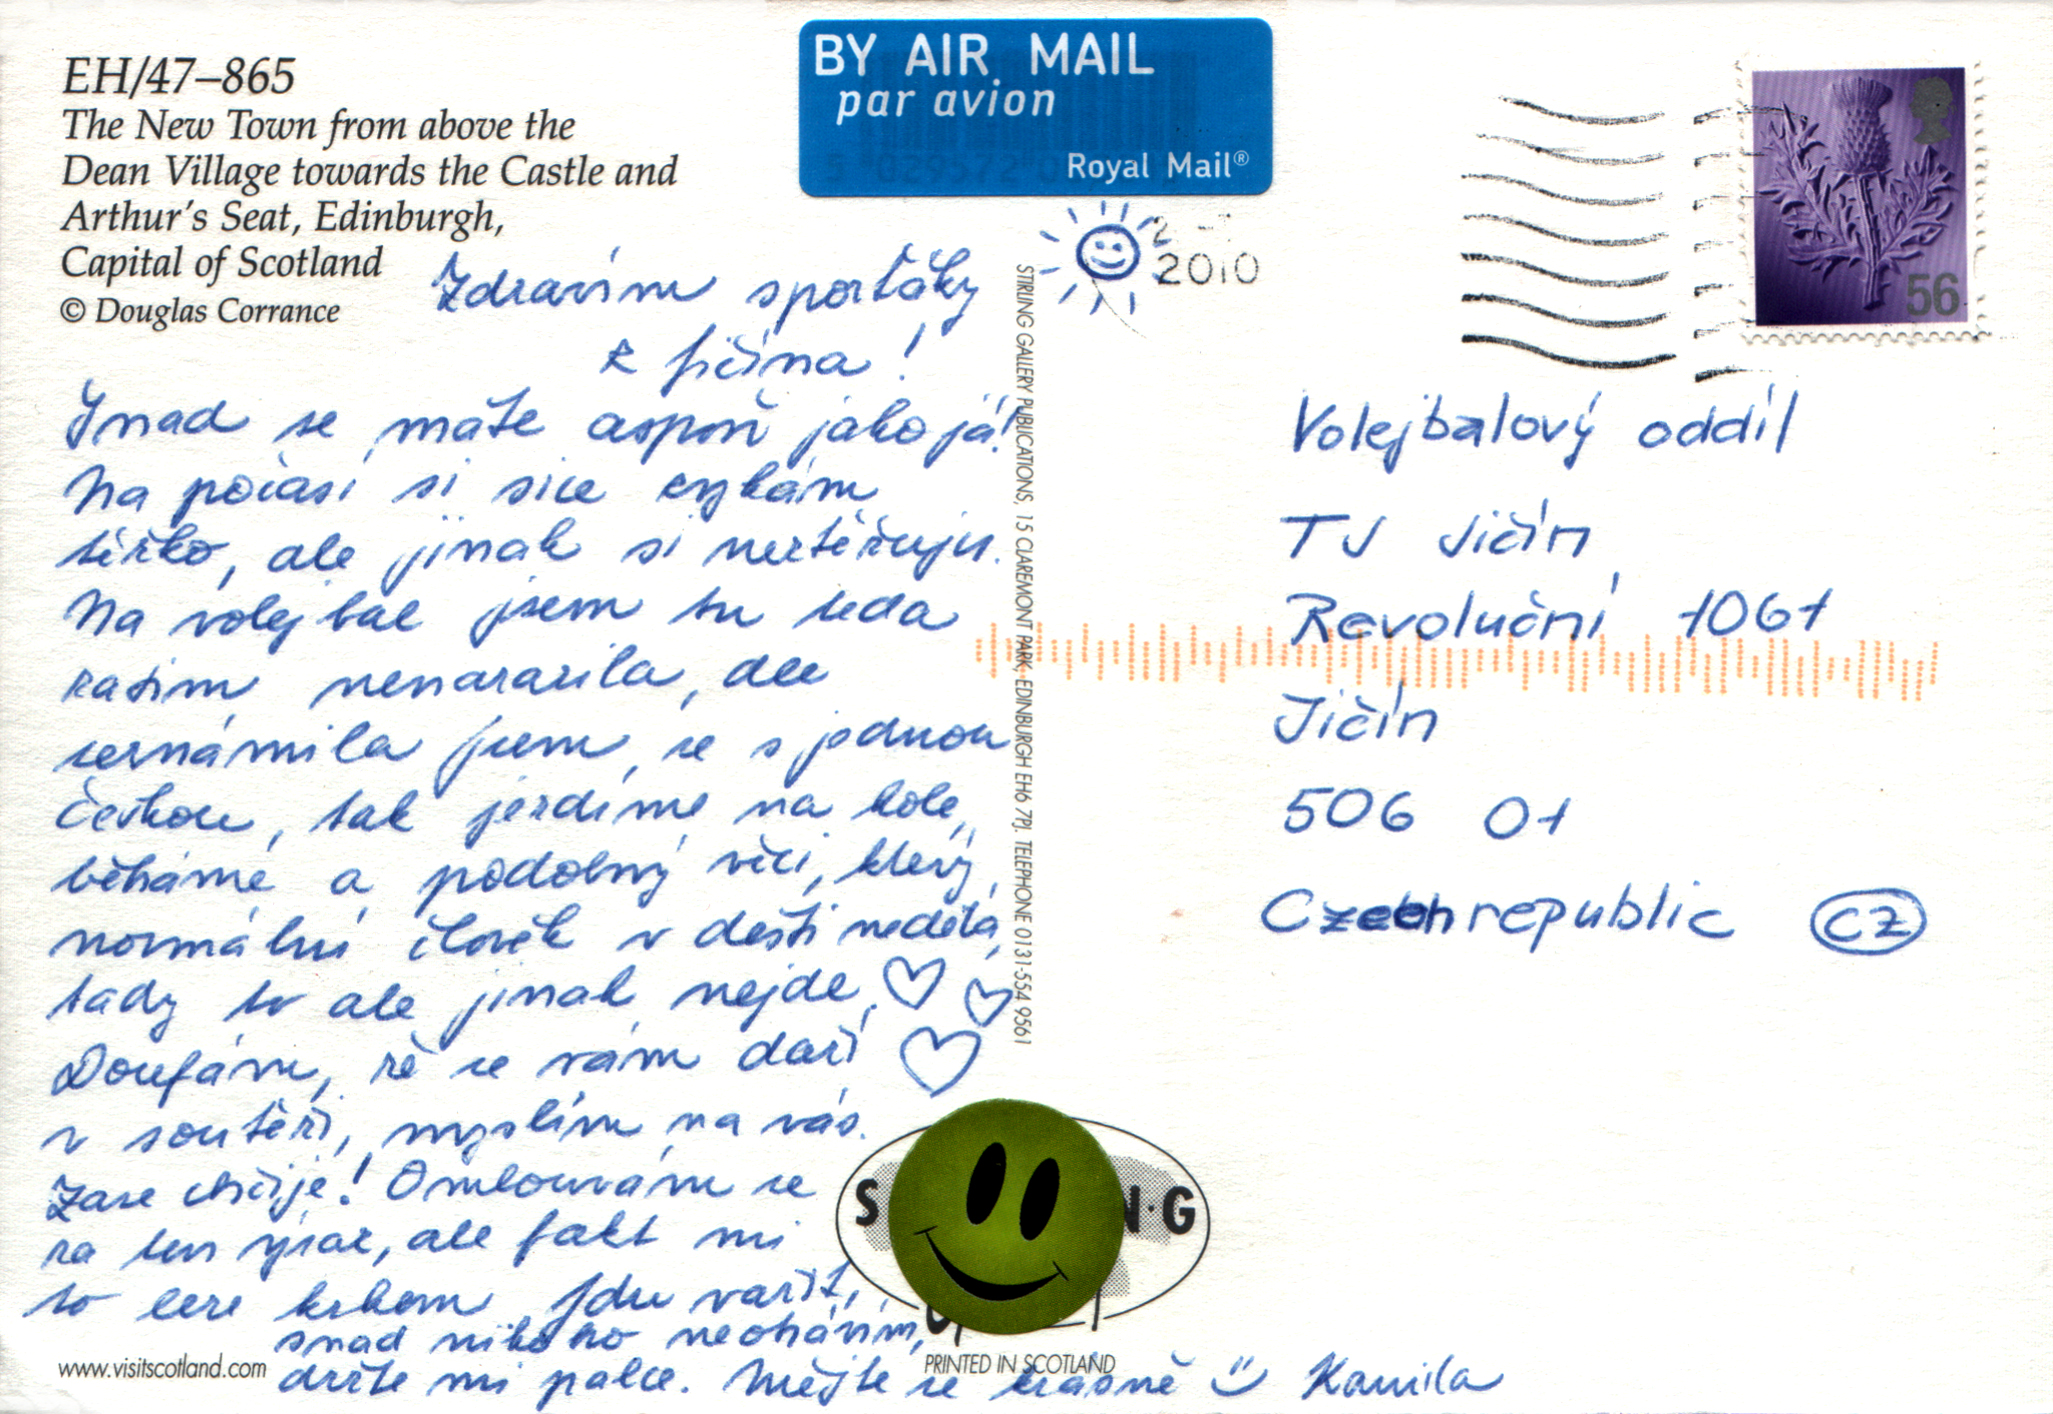 EH/47–865
The New Town from above the
Dean Village towards the Castle and
Arthur's Seat, Edinburgh,
Capital of Scotland
© Douglas Corrance
BY AIR MAIL
par avion
Royal Mail®
2010
56
Zdravím sporťáky
z Jičína!
Snad se máte aspoň jako já!
Na počasí si sice zvykám
těžko, ale jinak si nestěžuju.
Na volejbal jsem tu teda
zatim nenarazila, ale
seznámila jsem se s jednou
Češkou, tak jezdíme na kole,
běháme a podobný věci, který
normální člověk v dešti nedělá,
tady to ale jinak nejde.
Doufám, že se vám daří
v soutěži, myslím na vás.
Zase chčije! Omlouvám se
za ten výraz, ale fakt mi
to leze krkem. Jdu vařit,
snad nikoho neotrávím,
držte mi palce. Mějte se krásně Kamila
STIRLING GALLERY PUBLICATIONS, 15 CLAREMONT PARK, EDINBURGH EH6 7PJ. TELEPHONE 0131-554 9561
Volejbalový oddíl
TJ Jičín
Revoluční 1061
Jičín
506 01
Czech republic CZ
www.visitscotland.com
PRINTED IN SCOTLAND